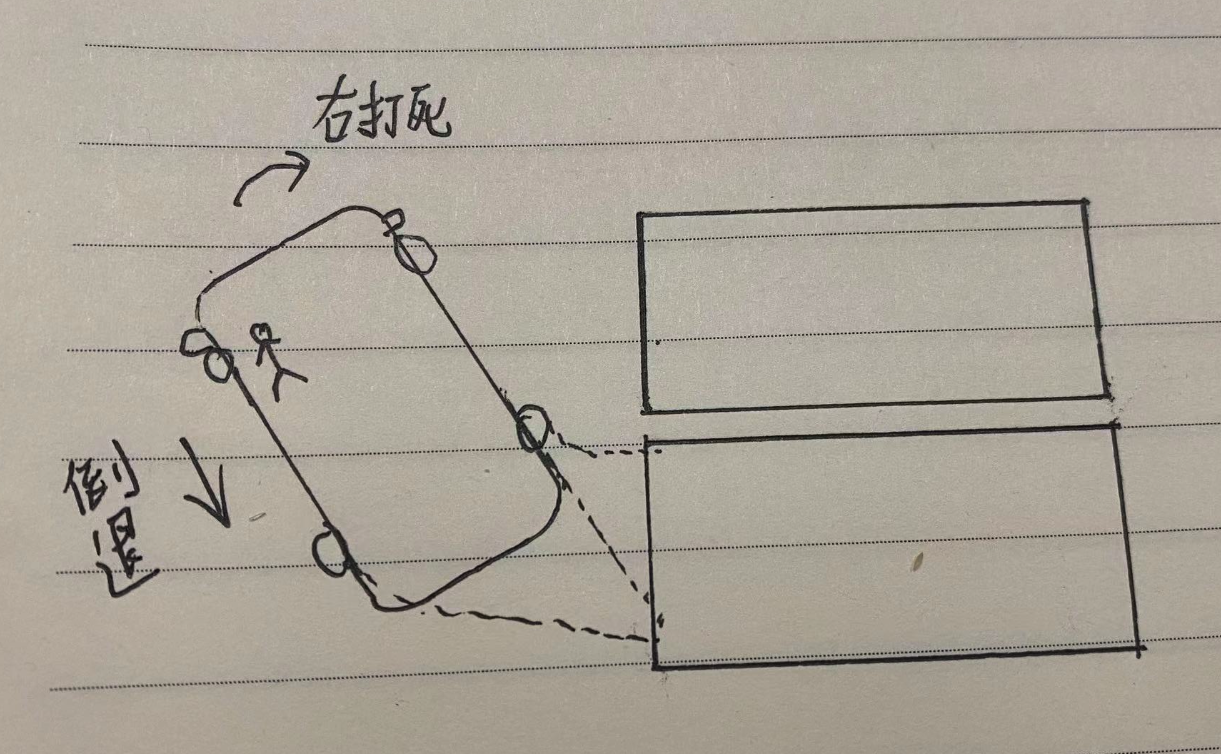 右打死
倒退